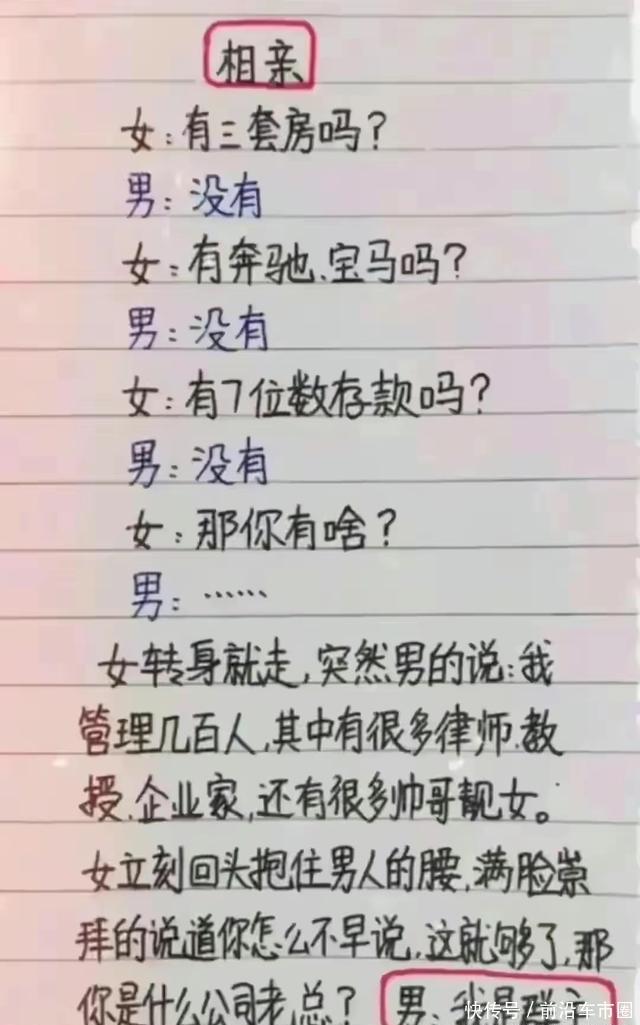 相亲
女:有三套房吗?
男:没有
女:有奔驰、宝马吗?
男:没有
女:有7位数存款吗?
男:没有
女:那你有啥?
男:……
女转身就走,突然男的说:我
管理几百人,其中有很多律师、教
授、企业家,还有很多帅哥靓女。
女立刻回头抱住男人的腰,满脸崇
拜的说道你怎么不早说,这就够了,那
你是什么公司老总? 男:我是
快传号/前沿车市圈